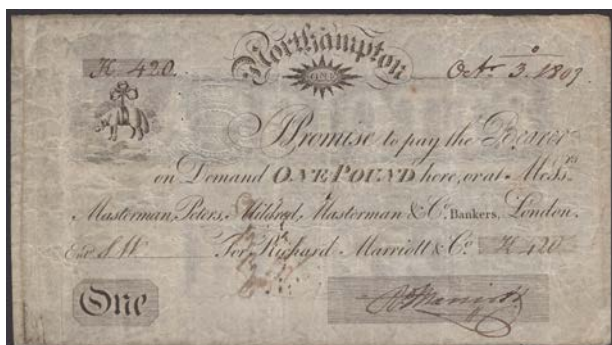 Northampton
K 420. ONE Octr 3. 1809
I Promise to pay the Bearer
on Demand ONE POUND here, or at Messrs
Masterman, Peters, Mildred, Masterman & Co. Bankers, London.
Entd For Richard Marriott & Co. K 420
One Rd Marriott